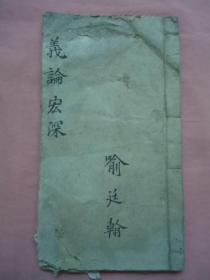 義論宏深
喻廷翰